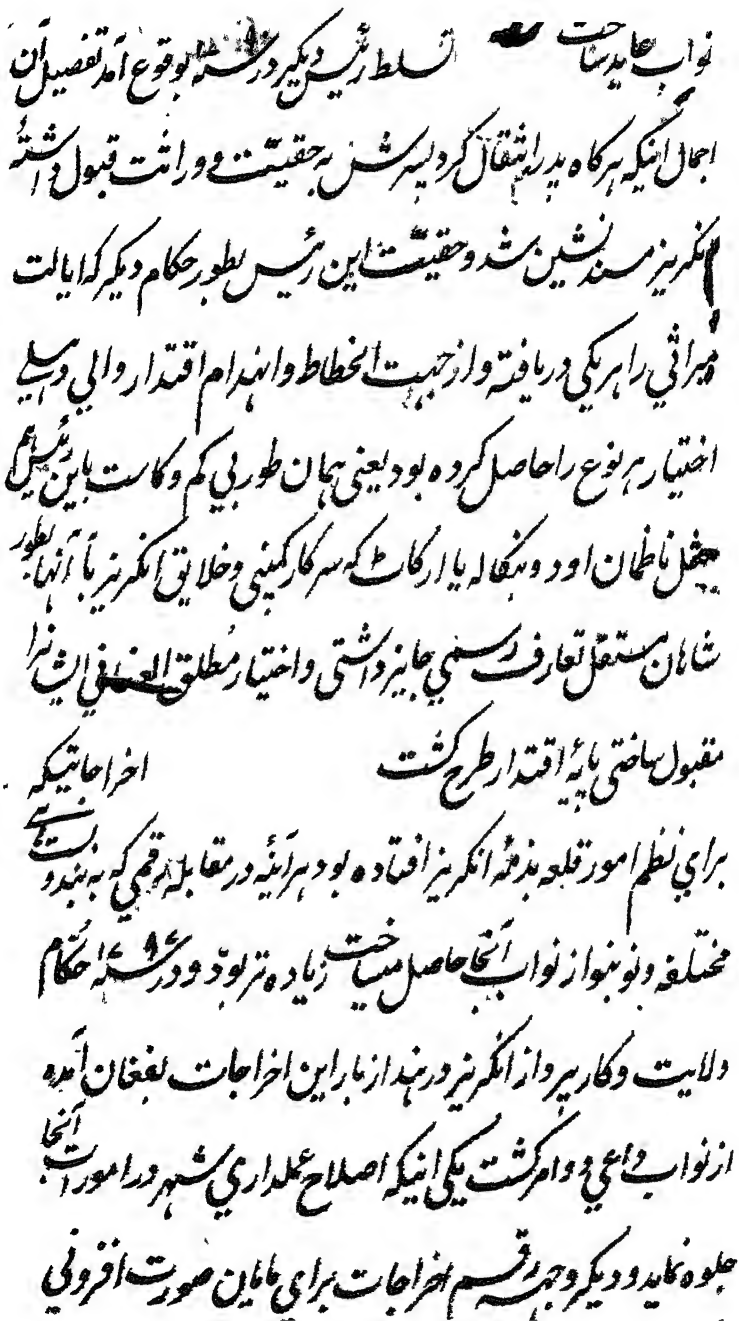 نواب عاید ساخت تسلط رئیس دیگر در سنه بوقوع آمد تفصیل آن
اجمال اینکه هرگاه پدر انتقال کرد پسرش به حقیّت و وراثت قبول داشتهٔ
انگریز مسند نشین شد و حقیّت این رئیس بطور حکام دیگر که ایالت
میراثی را هریکی دریافته و از جهت انحطاط و انهدام اقتدار والی دهلی
اختیار هر نوع را حاصل کرده بود یعنی همان طور بی کم و کاست باین رئیس هم
مثل ناظمان اود و بنگاله یا ارکاٹ که سرکار کمپنی و خلایق انگریز با آنها بطور
شاهان مستقل تعارف رسمی جایز داشتی و اختیار مطلق العنانی ایشانرا
مقبول ساختی پایهٔ اقتدار طرح گشت اخراجاتیکه
برای نظم امور قلعه بذمهٔ انگریز افتاده بود هرآئینه در مقابله رقمی که به بندوبست
مختلفه و نوبنو از نواب آنجا حاصل میساخت زیاده تر بود و در سنه ۱۷۹۷ حکّام
ولایت و کارپرداز انگریز در هند از بار این اخراجات بفغان آمده
از نواب داعی دو امر گشت یکی اینکه اصلاح عملداری شهر در امورات آنجا
جلوه نماید و دیگر وجه رقم اخراجات برای مایان صورت افزونی